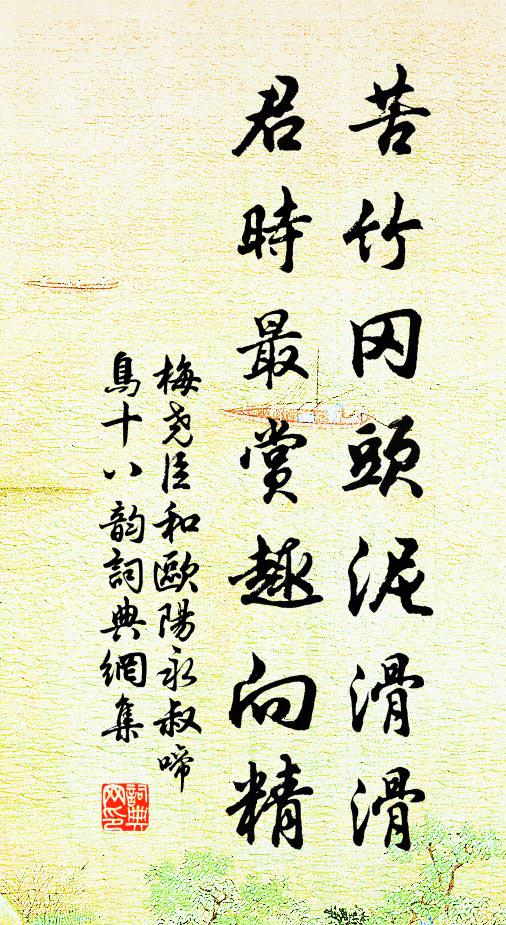 苦竹冈頭泥滑滑
君時最賞趣向精
梅尧臣和歐陽永叔啼
鳥十八韵詞典網集
詞典网印